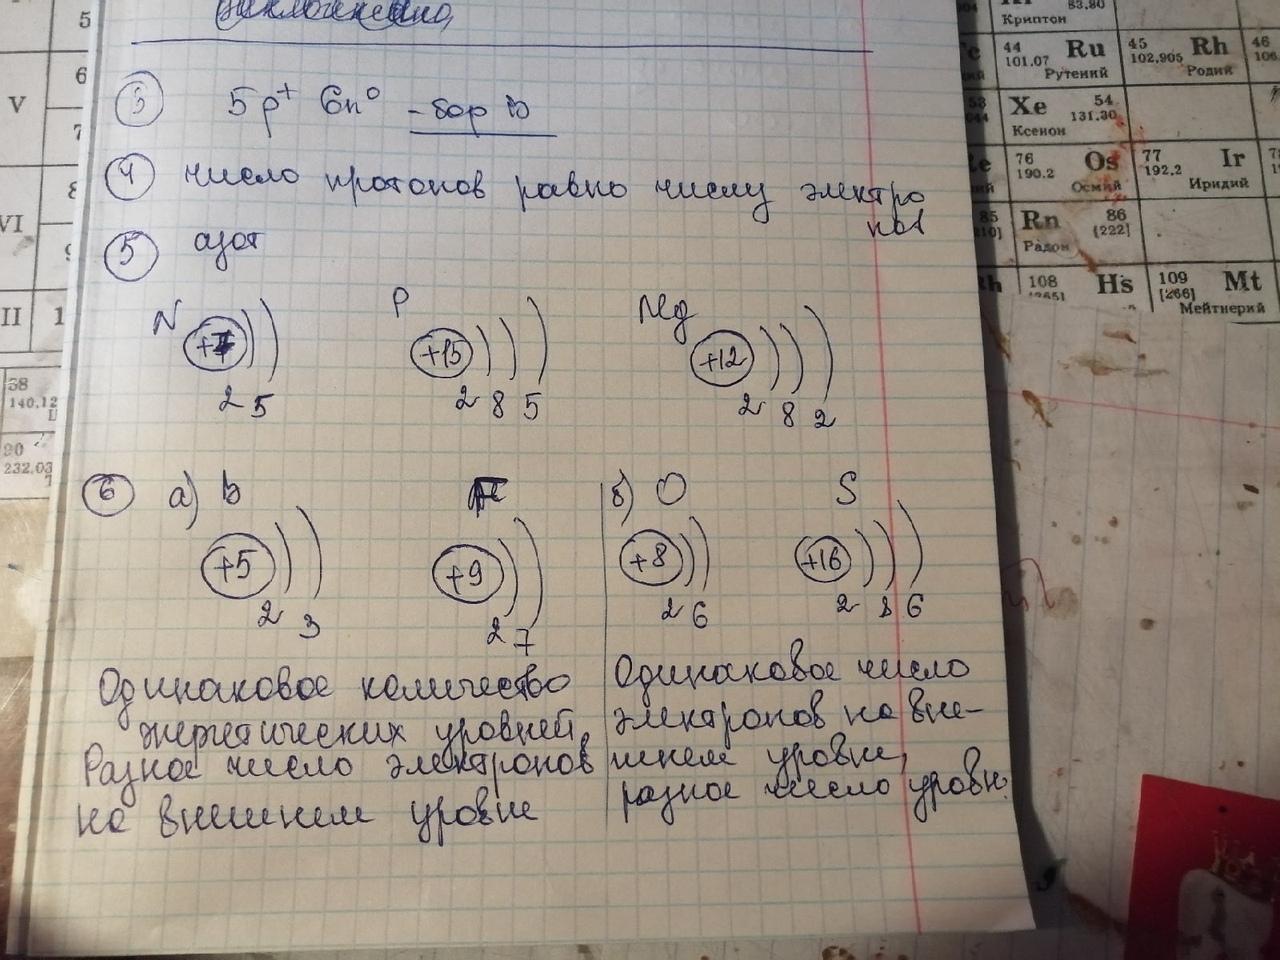 5
6
V
7
8
VI
9
II
1
58
140,12
90
232,03
83,80
Криптон
44 Ru
101,07
Рутений
45 Rh
102,905
Родий
46
106
Xe 54
131,30
Ксенон
76 Os
190,2
Осмий
77 Ir
192,2
Иридий
85 Rn 86
[222]
Радон
108 Hs
109 Mt
[266]
Мейтнерий
③ 5p⁺ 6n⁰ - бор B
④ число протонов равно числу электро
нов
⑤ азот
N P Mg
+7 +15 +12
2 5 2 8 5 2 8 2
⑥ а) B F
+5 +9
2 3 2 7
Одинаковое количество
энергетических уровней,
Разное число электронов
на внешнем уровне
б) O S
+8 +16
2 6 2 8 6
Одинаковое число
электронов на вне-
шнем уровне,
разное число уровн.